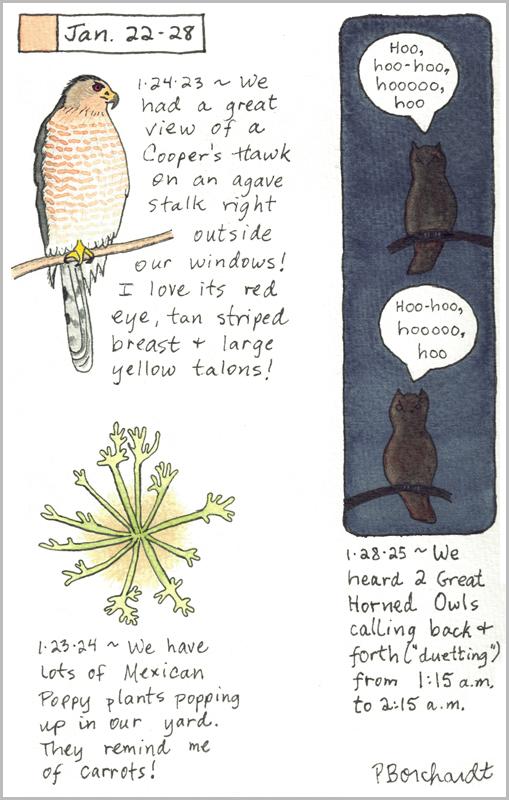 Jan. 22-28
1.24.23 ~ We
had a great
view of a
Cooper's Hawk
on an agave
stalk right
outside
our windows!
I love its red
eye, tan striped
breast + large
yellow talons!
1.23.24 ~ We have
lots of Mexican
Poppy plants popping
up in our yard.
They remind me
of carrots!
Hoo,
hoo-hoo,
hooooo,
hoo
Hoo-hoo,
hooooo,
hoo
1.28.25 ~ We
heard 2 Great
Horned Owls
calling back +
forth ("duetting")
from 1:15 a.m.
to 2:15 a.m.
PBorchardt